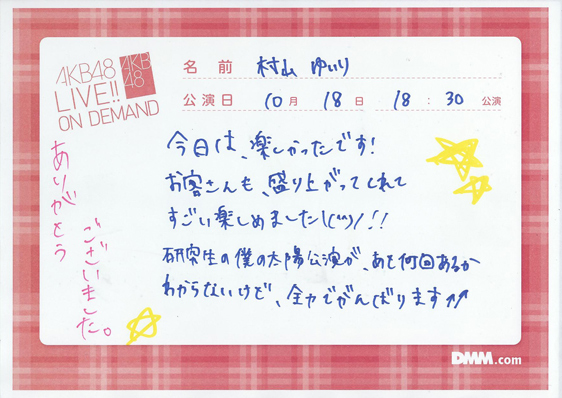 AKB48
LIVE!!
ON DEMAND
AKB
48
名前 村山 ゆいり
公演日 10月 18日 18:30 公演
今日は、楽しかったです!
お客さんも、盛り上がってくれて
すごい楽しめました\(^^)/!!
研究生の僕の太陽公演が、あと何回あるか
わからないけど、全力でがんばります↑↑
ありがとう
ございました。
DMM.com